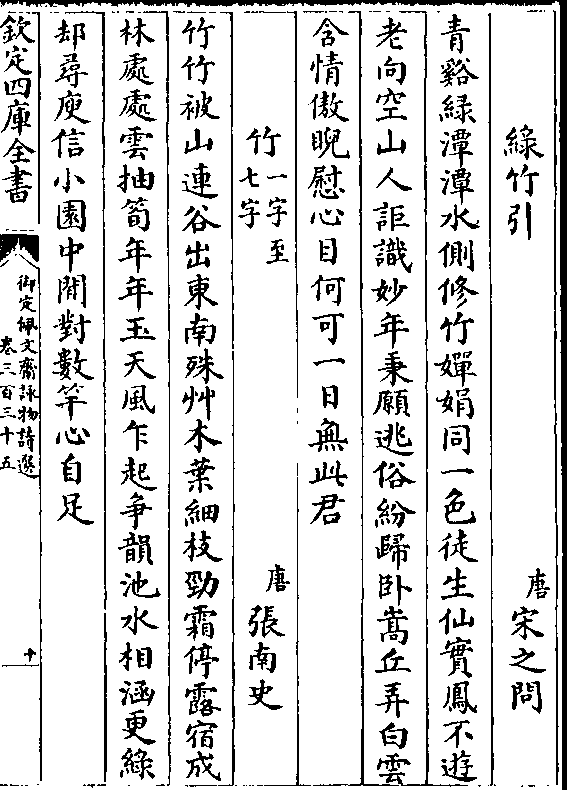 綠竹引
唐宋之問
青谿綠潭潭水側修竹嬋娟同一色徒生仙實鳳不遊
老向空山人詎識妙年秉願逃俗紛歸卧嵩丘弄白雲
含情傲睨慰心目何可一日無此君
竹一字至七字
唐張南史
竹竹被山連谷出東南殊艸木葉細枝勁霜停露宿成
林處處雲抽筍年年玉天風乍起争韻池水相涵更綠
却尋庾信小園中閒對數竿心自足
欽定四庫全書
御定佩文齋詠物詩選
卷三百三十五
十